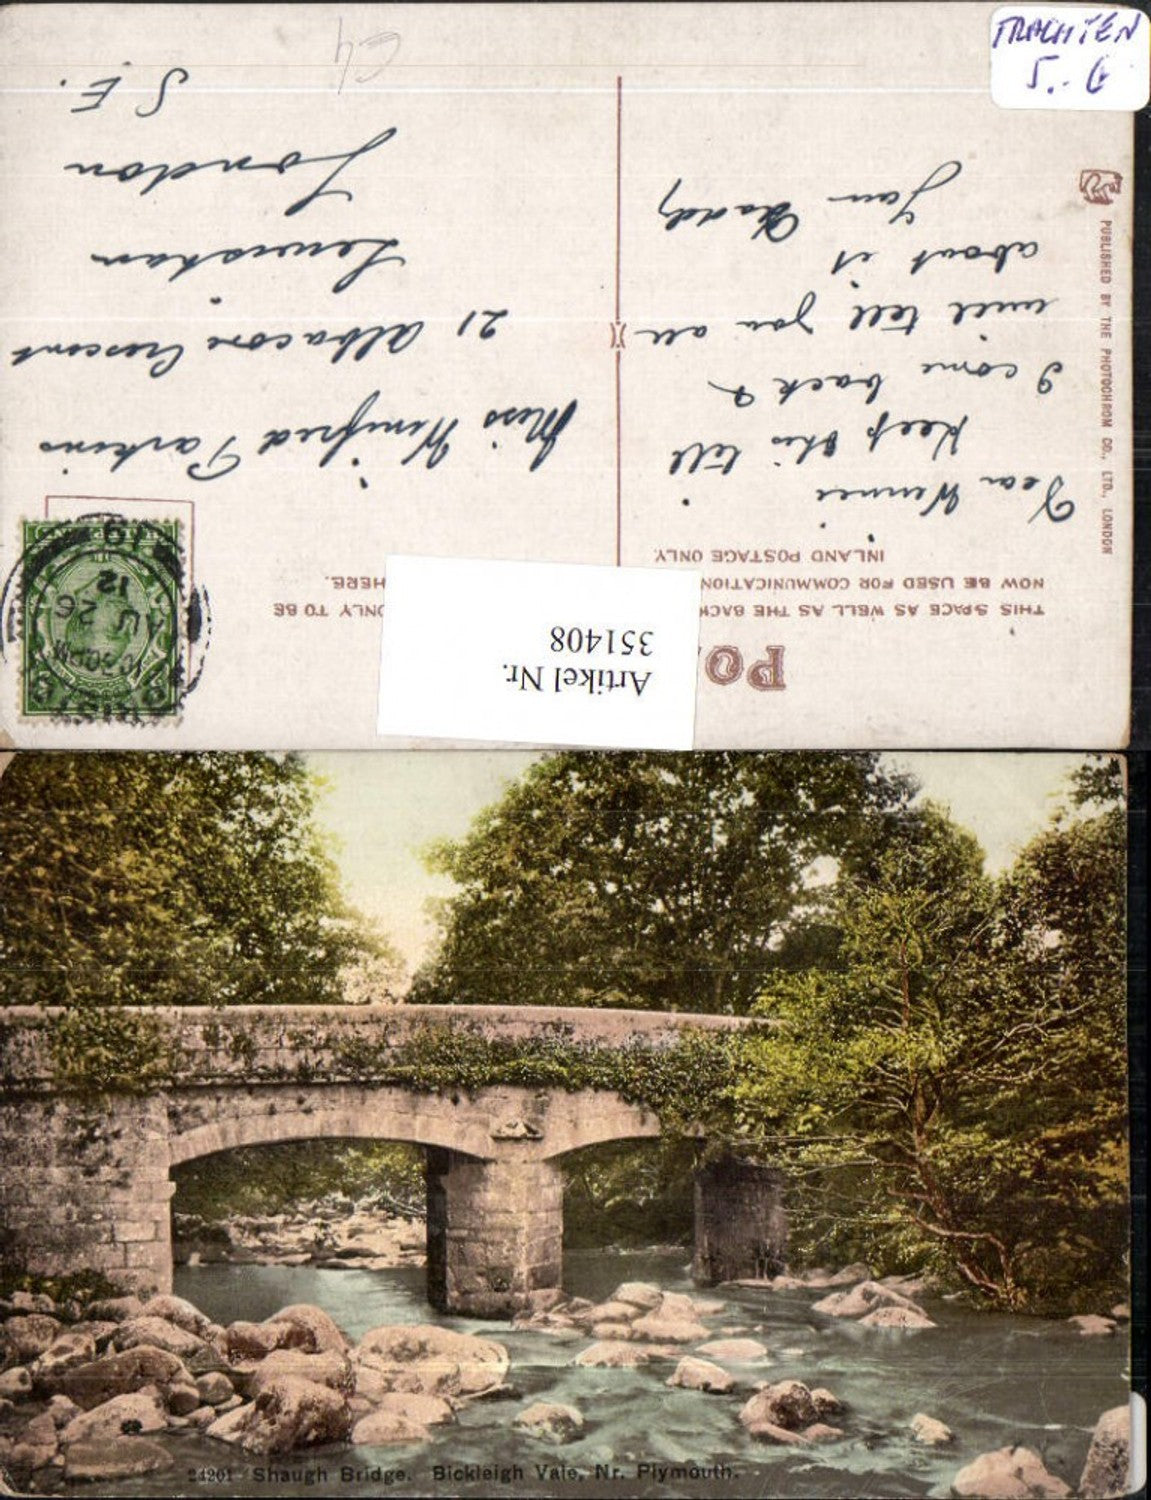 TRACHTEN
5.- G
POS
THIS SPACE AS WELL AS THE BACK
NOW BE USED FOR COMMUNICATION
INLAND POSTAGE ONLY.
ONLY TO BE
HERE.
Artikel Nr.
351408
Dear Winnie
Keep this till
I come back &
will tell you all
about it
Your Daddy
Miss Winifred Parkins
21 Albacore Crescent
Lewisham
London
S.E.
10.30PM
AU 26
12
PUBLISHED BY THE PHOTOCHROM CO., LTD., LONDON
24201 Shaugh Bridge. Bickleigh Vale, Nr. Plymouth.